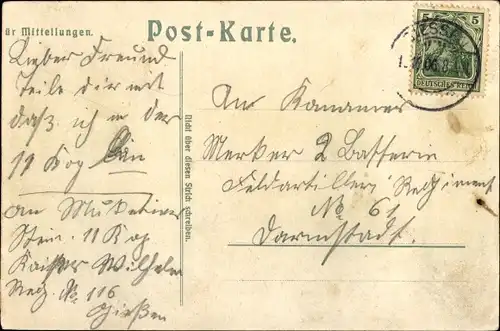 ür Mitteilungen.
Post-Karte.
Lieber Freund
Teile dir mit
daß ich in der
11 Kop bin
an Musketier
Stein. 11 Kop
Kaiser Wilhelm
Reg. No. 116
Gießen
Nicht über diesen Strich schreiben.
An Kanonier
Merker 2 Batterie
Feldartillerie Regiment
No 61
Darmstadt.
5 5
DEUTSCHES REICH
GIESSEN